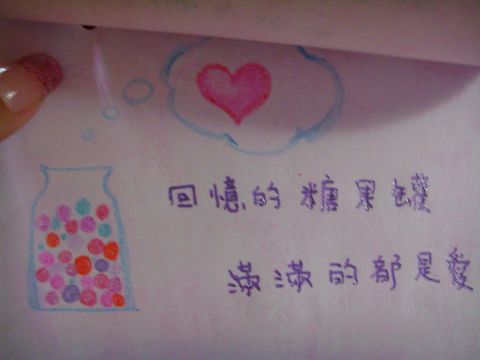 回憶的糖果罐
滿滿的都是愛